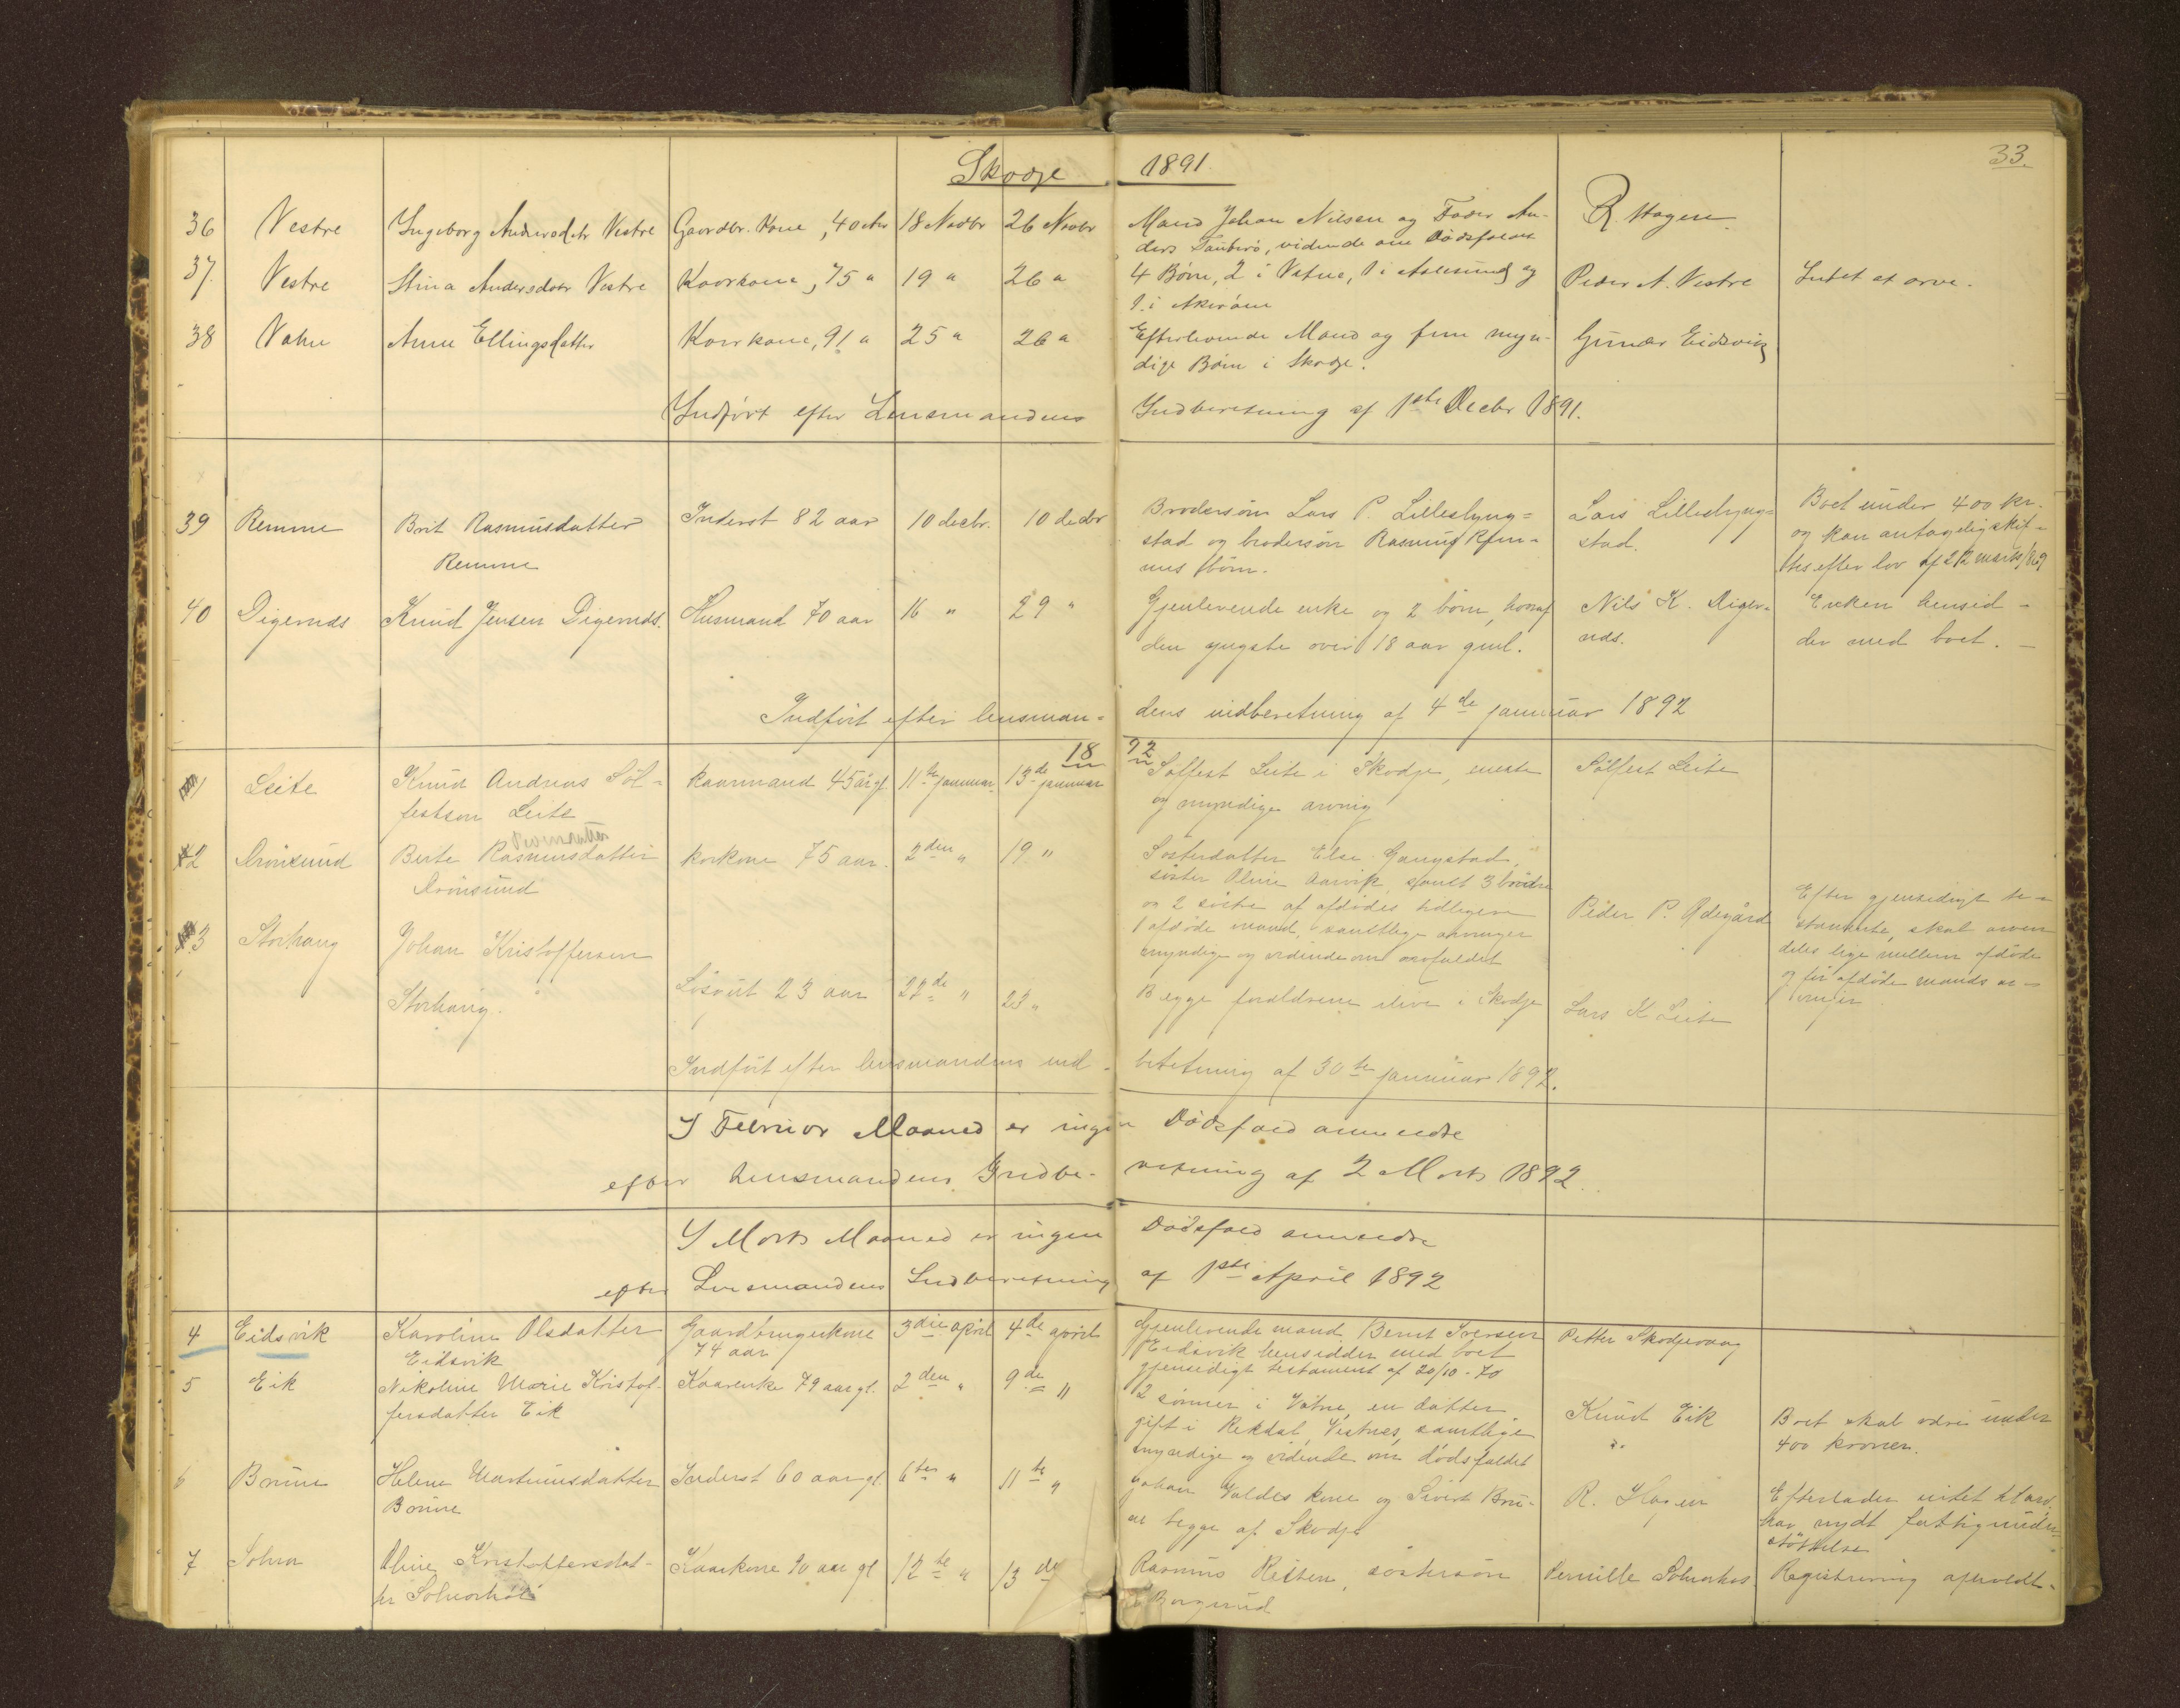 Skodje 1891. 33.
36 Vestre Ingeborg Andersdtr Vestre Gaardbr. Kone, 40 aar 18 Novbr 26 Novbr Mand Johan Nilsen og Fader An- R. Hagen
ders, vidende om Dødsfaldet
37. Vestre Stina Andersdatr Vestre Kaarkone, 75 " 19 " 26 " 4 Børn, 2 i Vatne, 1 i Aalesund og Peder A. Vestre Intet at arve.
1 i
38 Vatne Anne Ellingsdatter Kaarkone, 91 " 25 " 26 " Efterlevende Mand og fem myn- Gunder Eidsvig
dige Børn i Skodje.
Indført efter Lensmandens Indberetning af 1ste Decbr 1891.
39 Remme Brit Rasmusdatter Inderst 82 aar 10 decbr. 10 decbr Brodersøn Lars P. Lillestyng= Lars Lillestyng= Boet under 400 kr.
stad og brodersøn Rasmus stad. og kan antagelig skif-
Remme børn. tes efter lov af
40 Digernæs Knud Jensen Digernæs. Husmand 70 aar 16 " 29 " Gjenlevende enke og 2 børn, hvoraf Nils K. Diger- Enken hensid-
den yngste over 18 aar gml. næs. der med boet.
Indført efter lensman= dens indberetning af 4de januar 1892
1892
1 Leite Knud Andreas Søl- kaarmand 45 år gl. 11te januar 13de januar Sølfest Leite i Skodje, eneste Sølfest Leite
festsøn Leite og myndige arving
2 Drønesund Berte Rasmusdatter korkone 75 aar. 2den " 19 " Søsterdatter Else Gangstad,
Drønesund søster Oline Aarvik, samt 3 brødre
og 2 søstre af afdødes tidligere Peder P. Ødegård Efter gjensidigt te-
1 afdøde mand, samtlige arvinger stamente, skal arven
3 Storhaug Johan Kristoffersen myndige og vidende om arvefaldet deles lige mellem afdøde
Storhaug. Løsgut 23 aar 22de " 23 " Begge forældrene ilive i Skodje Lars K Leite og før afdøde mands ar-
vinger
Indført efter lensmandens ind- beretning af 30te januar 1892.
I Februar Maaned er ingen Dødsfald anmeldte
efter Lensmandens Indbe- retning af 2 Marts 1892
I Marts Maaned er ingen Dødsfald anmeldte
efter Lensmandens Indberetning af 1ste April 1892
4 Eidsvik Karoline Olsdatter Gaardbrugerkone 3die april 4de april Gjenlevende mand Bernt Iversen Petter Skodjevaag
Eidsvik 74 aar Eidsvik hensidder med boet
gjensidigt testament af 20/10-70
5 Eik Nikoline Marie Kristof- Kaarenke 79 aar gl. 2den " 9de " 2 sønner i Vatne, en datter Knud Eik Boet skal være under
fersdatter Eik gift i Rekdal, Vestnes, samtlige 400 kroner.
myndige og vidende om dødsfaldet
6 Brune Helene Martinusdatter Inderst 60 aar gl. 6te " 11te " Johan Valdes kone og Sivert Bru- R. Hagen Efterlader intet
Brune ne begge af Skodje har nydt fattigunder-
støttelse
7 Solnør Oline Kristoffersdat- Kaarkone 70 aar gl 12te " 13de Rasmus Reiten, søstersøn Pernille Registrering afholdt.
ter i Borgund